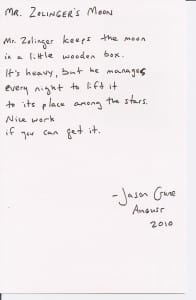 MR. ZOLINGER'S MOON
Mr. Zolinger keeps the moon
in a little wooden box.
It's heavy, but he manages
every night to lift it
to its place among the stars.
Nice work
if you can get it.
-Jason Crane
August
2010